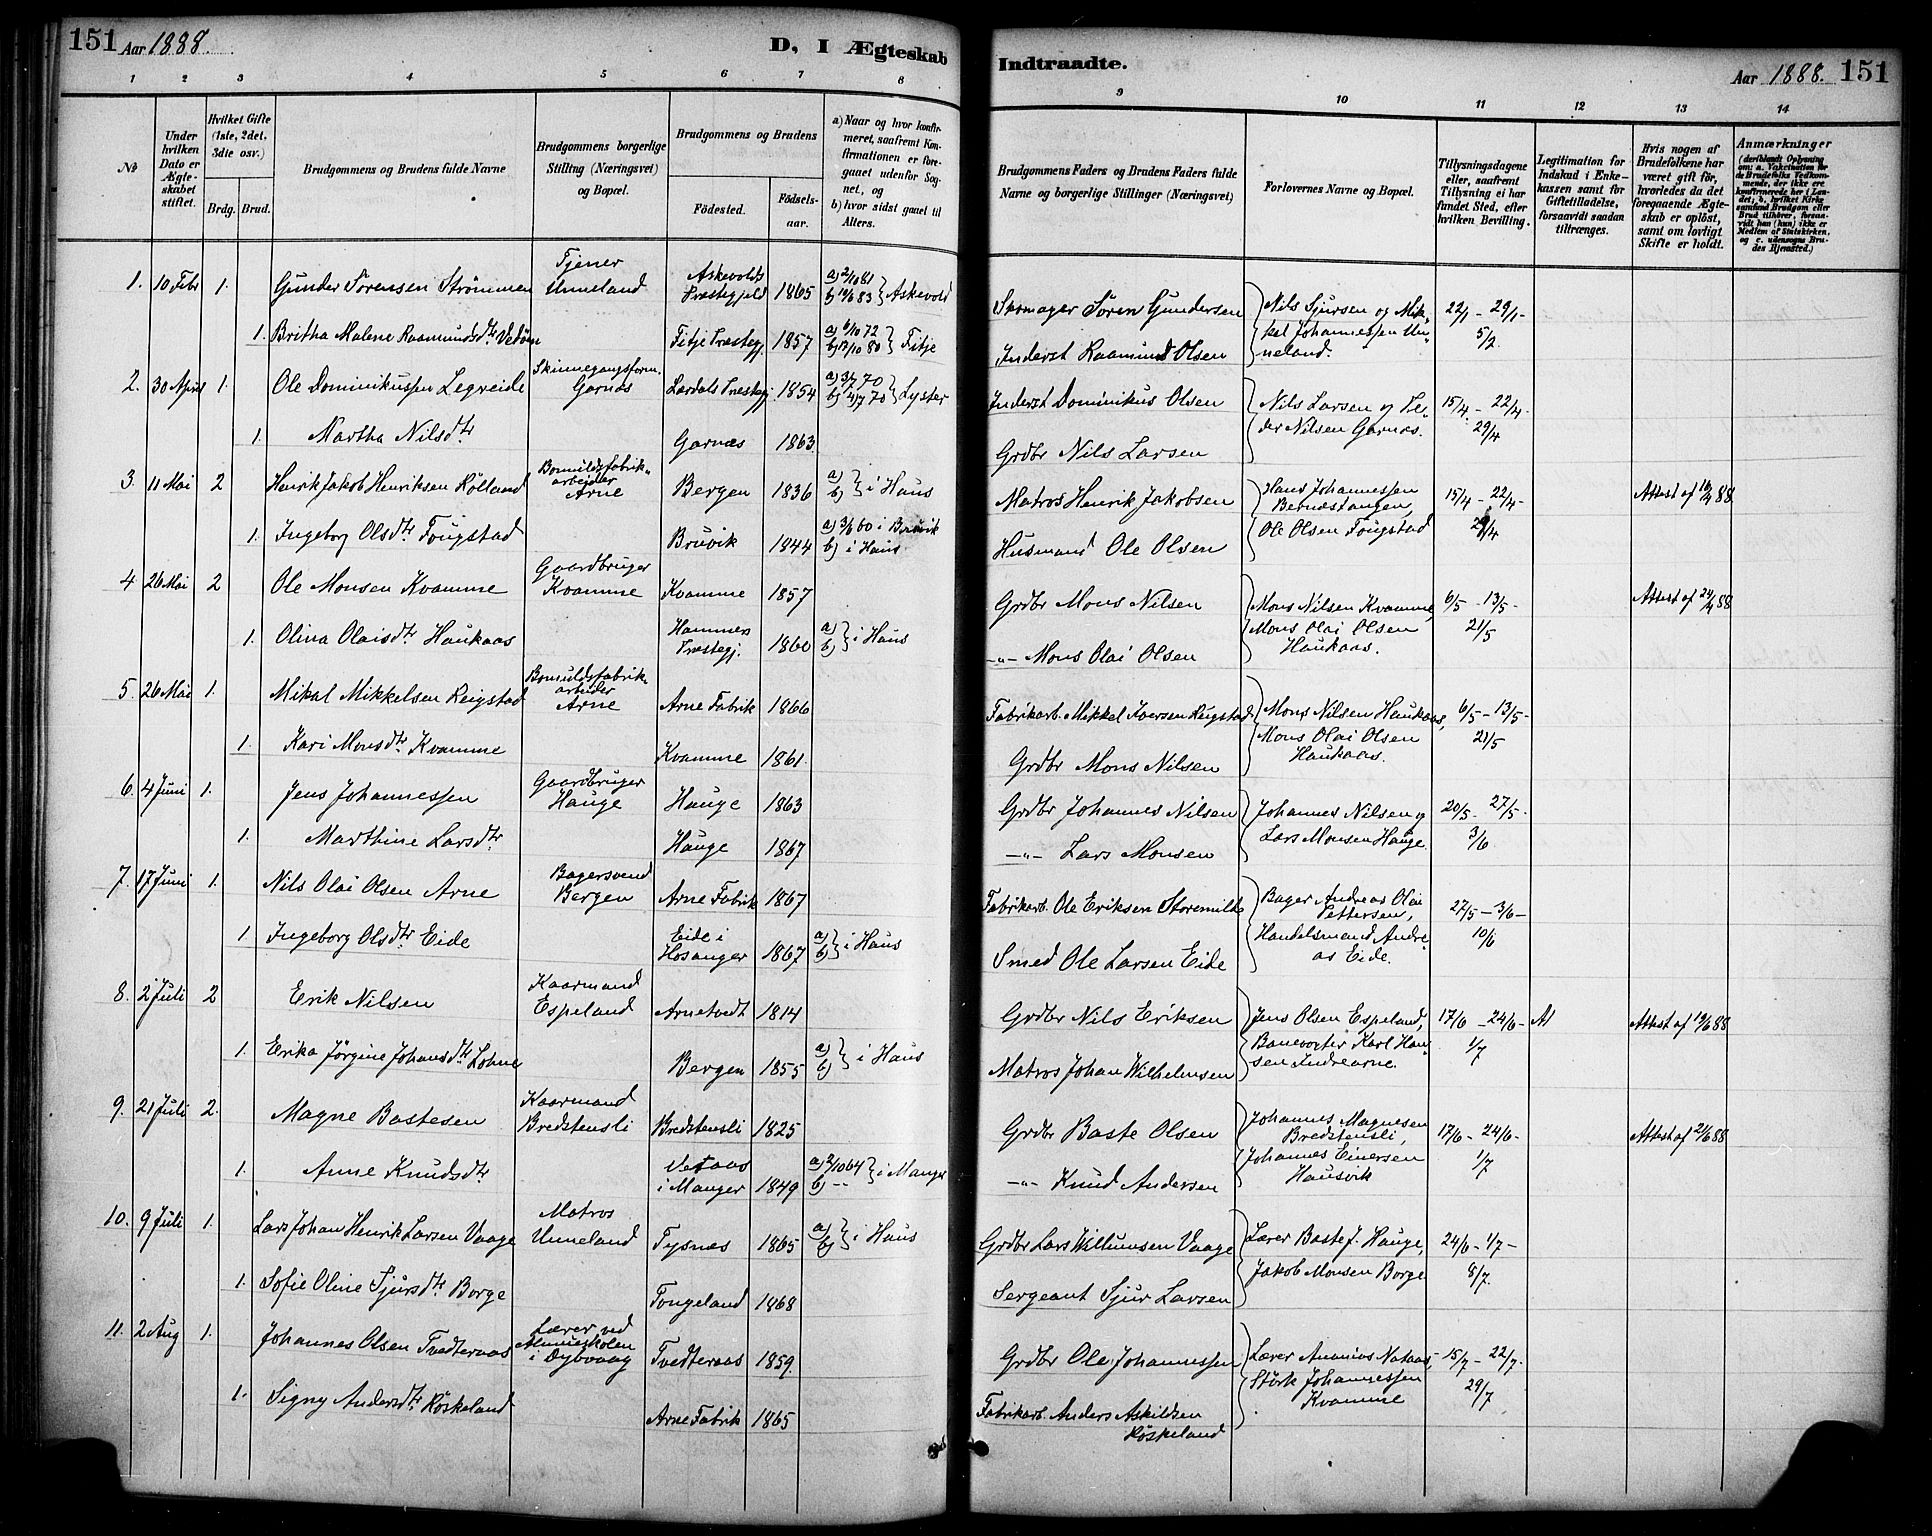 151 Aar 1888.
D, I Ægteskab
1 2 3 4 5 6 7 8
No
Under hvilken Dato er Ægteskabet stiftet.
Hvilket Gifte (1ste, 2det, 3die osv.)
Brdg. Brud.
Brudgommens og Brudens fulde Navne
Brudgommens borgerlige Stilling (Næringsvei) og Bopæl.
Brudgommens og Brudens
Födested.
Födsels-aar.
a) Naar og hvor konfirmeret, saafremt Konfirmationen er foregaaet udenfor Sognet, og
b) hvor sidst gaaet til Alters.
1. 10 Febr 1. Gunder Sörensen Strömmen Tjener Unneland Askevolds Præstegjeld 1865 a) 2/10 81 b) 83 } Askevold
1. Britha Malene Raamundsdtr. Fitje Præstegj. 1857 a) 6/10 72 b) 12/10 80 } Fitje
2. 30 April 1. Ole Dominikussen Legreide Skinnegangsform. Garnæs Lærdals Præstegj. 1854 a) 3/7 70 b) 4/7 70 } Lyster
1. Martha Nilsdtr Garnæs 1863.
3. 11 Mai 2 Henrik Jakob Henriksen Rölland Bomuldsfabrik-arbeider Arne Bergen 1836 a) b) } i Haus
1. Ingeborg Olsdtr Tougstad Bruvik 1844 a) 3/6 60 i Bruvik b) i Haus
4 26 Mai 2 Ole Monsen Kvamme Gaardbruger Kvamme Kvamme 1857
1. Olina Olaisdtr Haukaas Hammers Præstegj. 1860 a) b) } i Haus
5. 26 Mai 1. Mikal Mikkelsen Reigstad Bomuldsfabrik-arbeider Arne Arne Fabrik 1866
1. Kari Monsdtr. Kvamme Kvamme 1861.
6. 4 Juni 1. Jens Johannessen Gaardbruger Hauge Hauge 1863
1. Marthine Larsdtr. Hauge 1867
7. 17 Juni 1. Nils Olai Olsen Arne Bagersvend Bergen Arne Fabrik 1867
1. Ingeborg Olsdtr. Eide Eide i Hosanger 1867 a) b) } i Haus
8. 2 Juli 2 Erik Nilsen Kaarmand Espeland Arnetvedt 1814
1. Erika Jörgine Johansdtr. Lohne Bergen 1855 a) b) } i Haus
9. 21 Juli 2. Magne Bastesen Kaarmand Bredstensli Bredstensli 1825
1. Anne Knudsdtr. i Manger 1849 a) 2/10 64 b) -"- } i Manger
10. 9 Juli 1. Lars Johan Henrik Larsen Vaage Matros Unneland Tysnæs 1865 a) b) } i Haus
1. Sofie Oline Sjursdtr Borge Tougeland 1868
11. 2 Aug 1. Johannes Olsen Tvedteraas Lærer ved Almueskolen i Dybvaag Tvedteraas 1859.
1. Signy Andersdtr. Röskeland Arne Fabrik 1865
Indtraadte.
Aar 1888. 151
9 10 11 12 13 14
Brudgommens Faders og Brudens Faders fulde Navne og borgerlige Stillinger (Næringsvei)
Forlovernes Navne og Bopæl.
Tillysningsdagene eller, saafremt Tillysning ei har fundet Sted, efter hvilken Bevilling.
Legitimation for Indskud i Enkekassen samt for Giftetilladelse, forsaavidt saadan tiltrænges.
Hvis nogen af Brudefolkene har været gift för, hvorledes da det foregaaende Ægteskab er oplöst, samt om lovligt Skifte er holdt.
Anmærkninger
Skomager Sören Gundersen } Nils Sjursen og Mikkel Johannessen Unneland. 22/1 - 29/1 - 5/2
Inderst Raamund Olsen
Inderst Dominikus Olsen } Nils Larsen og Peder Nilsen Garnæs. 15/4 - 22/4 - 29/4
Grdbr Nils Larsen
Matros Henrik Jakobsen } Hans Johannessen Bebnæstangen, 15/4 - 22/4 - 29/4 Attest af 88
Husmand Ole Olsen Ole Olsen Tougstad
Grdbr Mons Nilsen } Mons Nilsen Kvamme, 6/5 - 13/5 - 21/5 Attest af 88
-"- Mons Olai Olsen Mons Olai Olsen Haukaas.
Fabrikarb. Mikkel Iversen Reigstad } Mons Nilsen Haukaas, 6/5 - 13/5 - 21/5
Grdbr Mons Nilsen Mons Olai Olsen Haukaas.
Grdbr Johannes Nilsen } Johannes Nilsen og Lars Monsen Hauge. 20/5 - 27/5 - 3/6
-"- Lars Monsen
Fabrikarb. Ole Eriksen Storemilde } Bager Andreas Olai Pettersen, 27/5 - 3/6 - 10/6
Smed Ole Larsen Eide Handelsmand Andreas Eide.
Grdbr Nils Eriksen } Jens Olsen Espeland, 17/6 - 24/6 - 1/7 At Attest af 19/6 88
Matros Johan Wilhelmsen Banevogter Karl Hansen Indrearne.
Grdbr Baste Olsen } Johannes Magnesen Bredstensli, 17/6 - 24/6 - 1/7 Attest af 21/6 88
-"- Knud Andersen Johannes Einersen Hausvik
Grdbr Lars Willumsen Vaage } Lærer Baste J. Hauge, 24/6 - 1/7 - 8/7
Sergeant Sjur Larsen Jakob Monsen Borge
Grdbr Ole Johannessen } Lærer Ananias Nataas, 15/7 - 22/7 - 29/7
Fabrikarb. Anders Askildsen Röskeland Störk Johannessen Kvamme